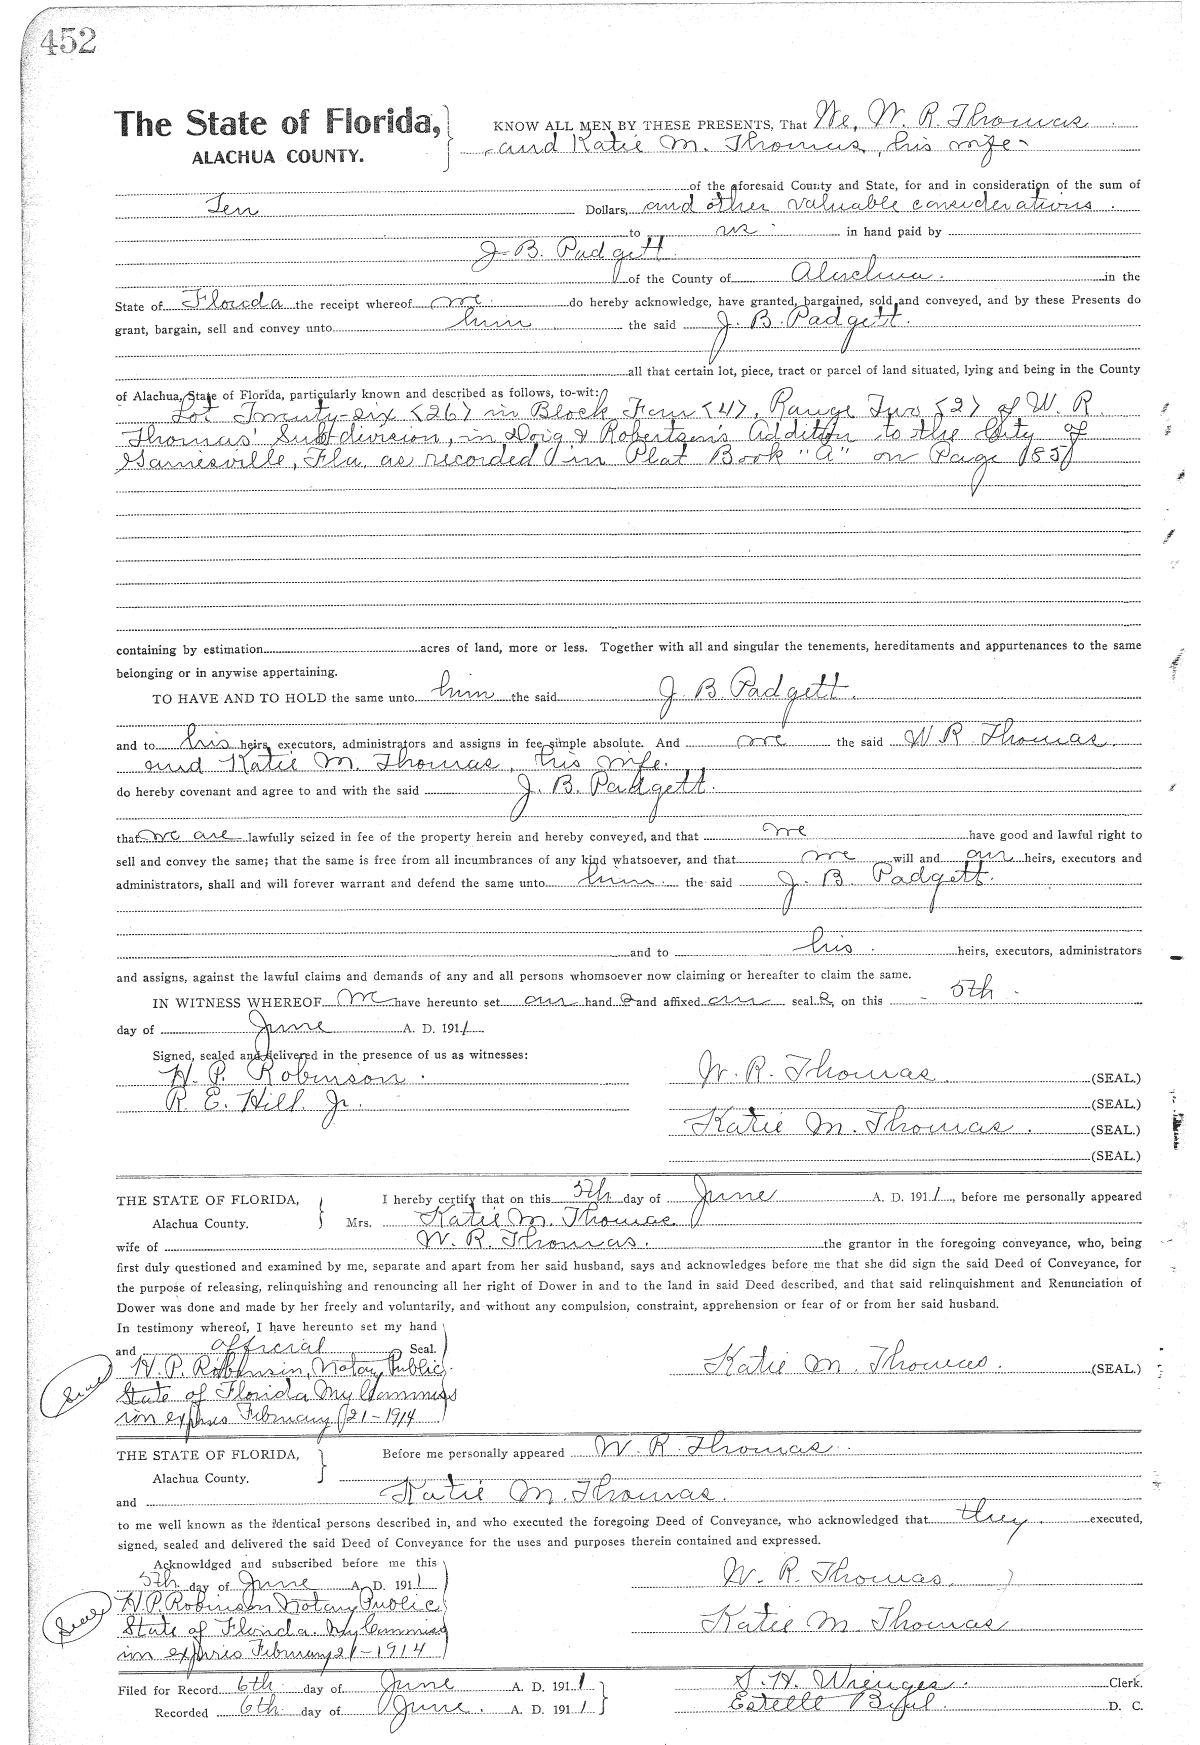 452
The State of Florida,
ALACHUA COUNTY.
KNOW ALL MEN BY THESE PRESENTS, That We, W. R. Thomas
and Katie M. Thomas, his wife
of the aforesaid County and State, for and in consideration of the sum of
Ten Dollars, and other valuable considerations.
to us in hand paid by
J. B. Padgett
of the County of Alachua. in the
State of Florida the receipt whereof we do hereby acknowledge, have granted, bargained, sold and conveyed, and by these Presents do
grant, bargain, sell and convey unto him the said J. B. Padgett.
all that certain lot, piece, tract or parcel of land situated, lying and being in the County
of Alachua, State of Florida, particularly known and described as follows, to-wit:
Lot Twenty-six <26> in Block Four <4>, Range Two <2> of W. R.
Thomas' Subdivision, in Doig & Robertson's Addition to the City of
Gainesville, Fla, as recorded in Plat Book "A" on Page 85
containing by estimation acres of land, more or less. Together with all and singular the tenements, hereditaments and appurtenances to the same
belonging or in anywise appertaining.
TO HAVE AND TO HOLD the same unto him the said J. B. Padgett.
and to his heirs, executors, administrators and assigns in fee simple absolute. And we the said W. R. Thomas
and Katie M. Thomas, his wife.
do hereby covenant and agree to and with the said J. B. Padgett.
that we are lawfully seized in fee of the property herein and hereby conveyed, and that we have good and lawful right to
sell and convey the same; that the same is free from all incumbrances of any kind whatsoever, and that we will and our heirs, executors and
administrators, shall and will forever warrant and defend the same unto him the said J. B. Padgett.
and to his heirs, executors, administrators
and assigns, against the lawful claims and demands of any and all persons whomsoever now claiming or hereafter to claim the same.
IN WITNESS WHEREOF We have hereunto set our hands and affixed our seals, on this 5th
day of June A. D. 1911
Signed, sealed and delivered in the presence of us as witnesses:
H. P. Robinson. W. R. Thomas (SEAL.)
R. E. Hill. Jr. (SEAL.)
Katie M. Thomas. (SEAL.)
(SEAL.)
THE STATE OF FLORIDA, I hereby certify that on this 5th day of June A. D. 1911, before me personally appeared
Alachua County. Mrs. Katie M. Thomas
wife of W. R. Thomas. the grantor in the foregoing conveyance, who, being
first duly questioned and examined by me, separate and apart from her said husband, says and acknowledges before me that she did sign the said Deed of Conveyance, for
the purpose of releasing, relinquishing and renouncing all her right of Dower in and to the land in said Deed described, and that said relinquishment and Renunciation of
Dower was done and made by her freely and voluntarily, and without any compulsion, constraint, apprehension or fear of or from her said husband.
In testimony whereof, I have hereunto set my hand
and official Seal.
H. P. Robinson, Notary Public Katie M. Thomas. (SEAL)
Seal State of Florida My Commiss
ion expires February 21-1914
THE STATE OF FLORIDA, Before me personally appeared W. R. Thomas
Alachua County.
and Katie M. Thomas.
to me well known as the identical persons described in, and who executed the foregoing Deed of Conveyance, who acknowledged that they executed,
signed, sealed and delivered the said Deed of Conveyance for the uses and purposes therein contained and expressed.
Acknowldged and subscribed before me this
5th day of June A. D. 1911 W. R. Thomas
H P. Robinson Notary Public
Seal State of Florida. My Commiss Katie M. Thomas
ion expires February 21-1914
Filed for Record 6th day of June A. D. 1911 S. H. Wienges. Clerk.
Recorded 6th day of June. A. D. 1911 Estelle D. C.